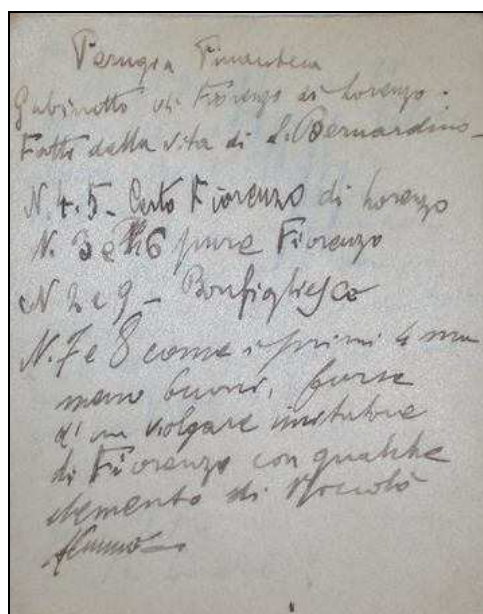 Perugia Pinacoteca
Gabinetto di Fiorenzo di Lorenzo.
Fatti della vita di S. Bernardino -
N. 4.5 - Certo Fiorenzo di Lorenzo
N. 3 e 6 pure Fiorenzo
N 2 e 9 - Bonfigliesco
N. 7 e 8 come i primi 4 ma
meno buoni, forse
d'un volgare imitatore
di Fiorenzo con qualche
elemento di Niccolò